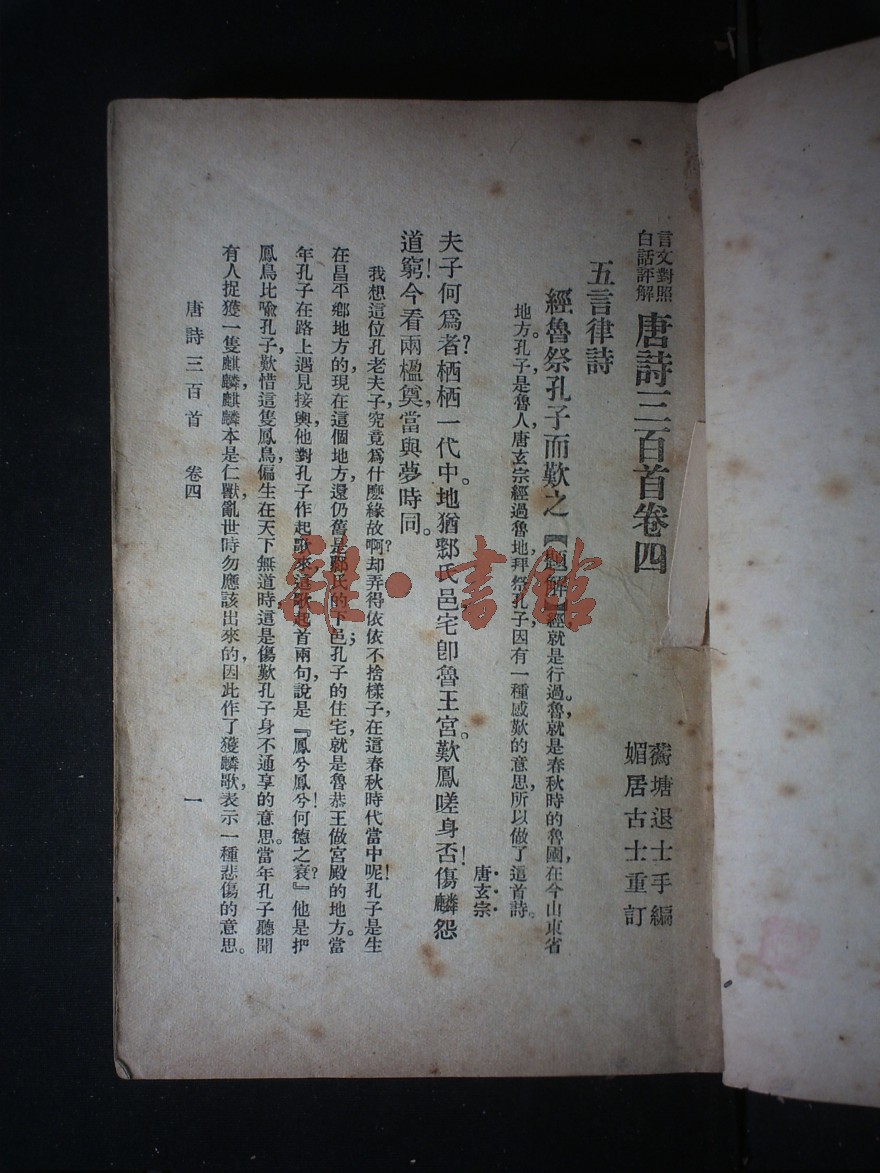 言文對照
白話評解
唐詩三百首卷四
蘅塘退士手編
媚居古士重訂
五言律詩
經魯祭孔子而歎之【題解】經就是行過。魯就是春秋時的魯國，在今山東省
地方。孔子是魯人，唐玄宗經過魯地，拜祭孔子，因有一種感歎的意思，所以做了這首詩。
唐玄宗
夫子何爲者？栖栖一代中。地猶鄹氏邑，宅卽魯王宮。歎鳳嗟身否！傷麟怨
道窮！今看兩楹奠，當與夢時同。
我想這位孔老夫子，究竟爲什麽緣故啊？却弄得依依不捨樣子，在這春秋時代當中呢！孔子是生
在昌平鄉地方的，現在這個地方，還仍舊是鄹氏的下邑；孔子的住宅，就是魯恭王做宮殿的地方。當
年孔子在路上遇見接輿，他對孔子作起歌來，這歌起首兩句說是『鳳兮鳳兮！何德之衰？』他是把
鳳鳥比喩孔子，歎惜這隻鳳鳥，偏生在天下無道時，這是傷歎孔子身不通享的意思。當年孔子聽聞
有人捉獲一隻麒麟，麒麟本是仁獸，亂世時勿應該出來的，因此作了獲麟歌，表示一種悲傷的意思。
唐詩三百首　卷四
一
雜·書館